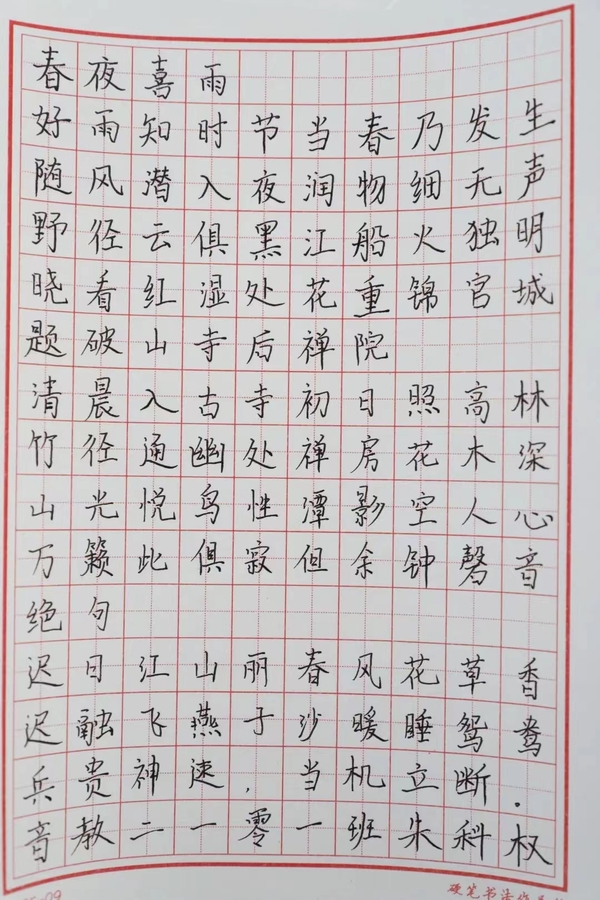 春夜喜雨
好雨知时节当春乃发生
随风潜入夜润物细无声
野径云俱黑江船火独明
晓看红湿处花重锦官城
题破山寺后禅院
清晨入古寺初日照高林
竹径通幽处禅房花木深
山光悦鸟性潭影空人心
万籁此俱寂但余钟磬音
绝句
迟日江山丽春风花草香
迟融飞燕子沙暖睡鸳鸯
兵贵神速,当机立断.
音教二一零一班朱科权
硬笔书法作品